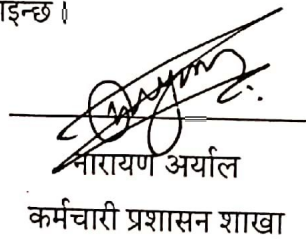 इन्छ ।
नारायण अर्याल
कर्मचारी प्रशासन शाखा